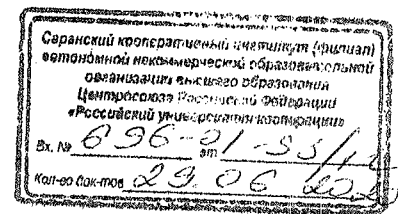 Саранский кооперативный институт (филиал)
автономной некоммерческой образовательной
организации высшего образования
Центросоюза Российской Федерации
«Российский университет кооперации»
Вх. № 696-01-33/ от
Кол-во док-тов 29.06 20